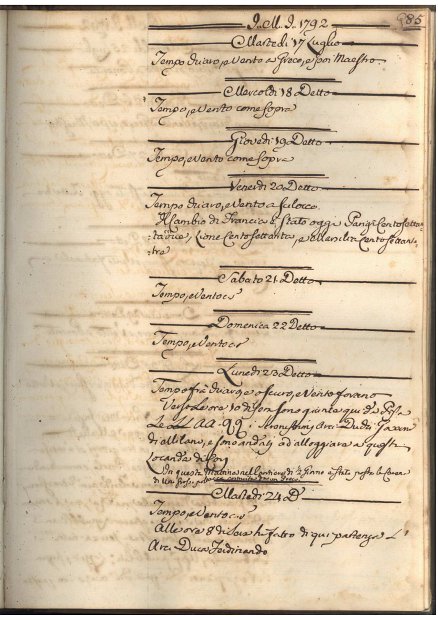 85
J. M. J. 1792
Martedì 17 Luglio
Tempo chiaro, e Vento a Greco, e poi Maestro
Mercoldì 18 Detto
Tempo, e Vento come sopra
Giovedì 19 Detto
Tempo, e Vento come sopra
Venerdì 20 Detto
Tempo chiaro, e Vento a
Il Cambio di Francia è stato oggi Parigi Cento setta
Lione Cento settanta, e Cento settan
tre
Sabato 21 Detto
Tempo, e Vento cs
Domenica 22 Detto
Tempo, e Vento cs
Lunedì 23 Detto
Tempo frà chiaro, e oscuro, e Vento
Verso le ore 10 di sono giunti qui da Pisa
Le LL AA RR. Arci Duchi Giovani
di Milano, e sono andati ad alloggiare a questa
Locanda di
In questa Mattina nel Cantiere di è stato posto la
di un
Martedì 24 D
Tempo, e Vento cs
Alle ore 8 di Sera ha fatto di qui partenza L'
Arci Duca Ferdinando